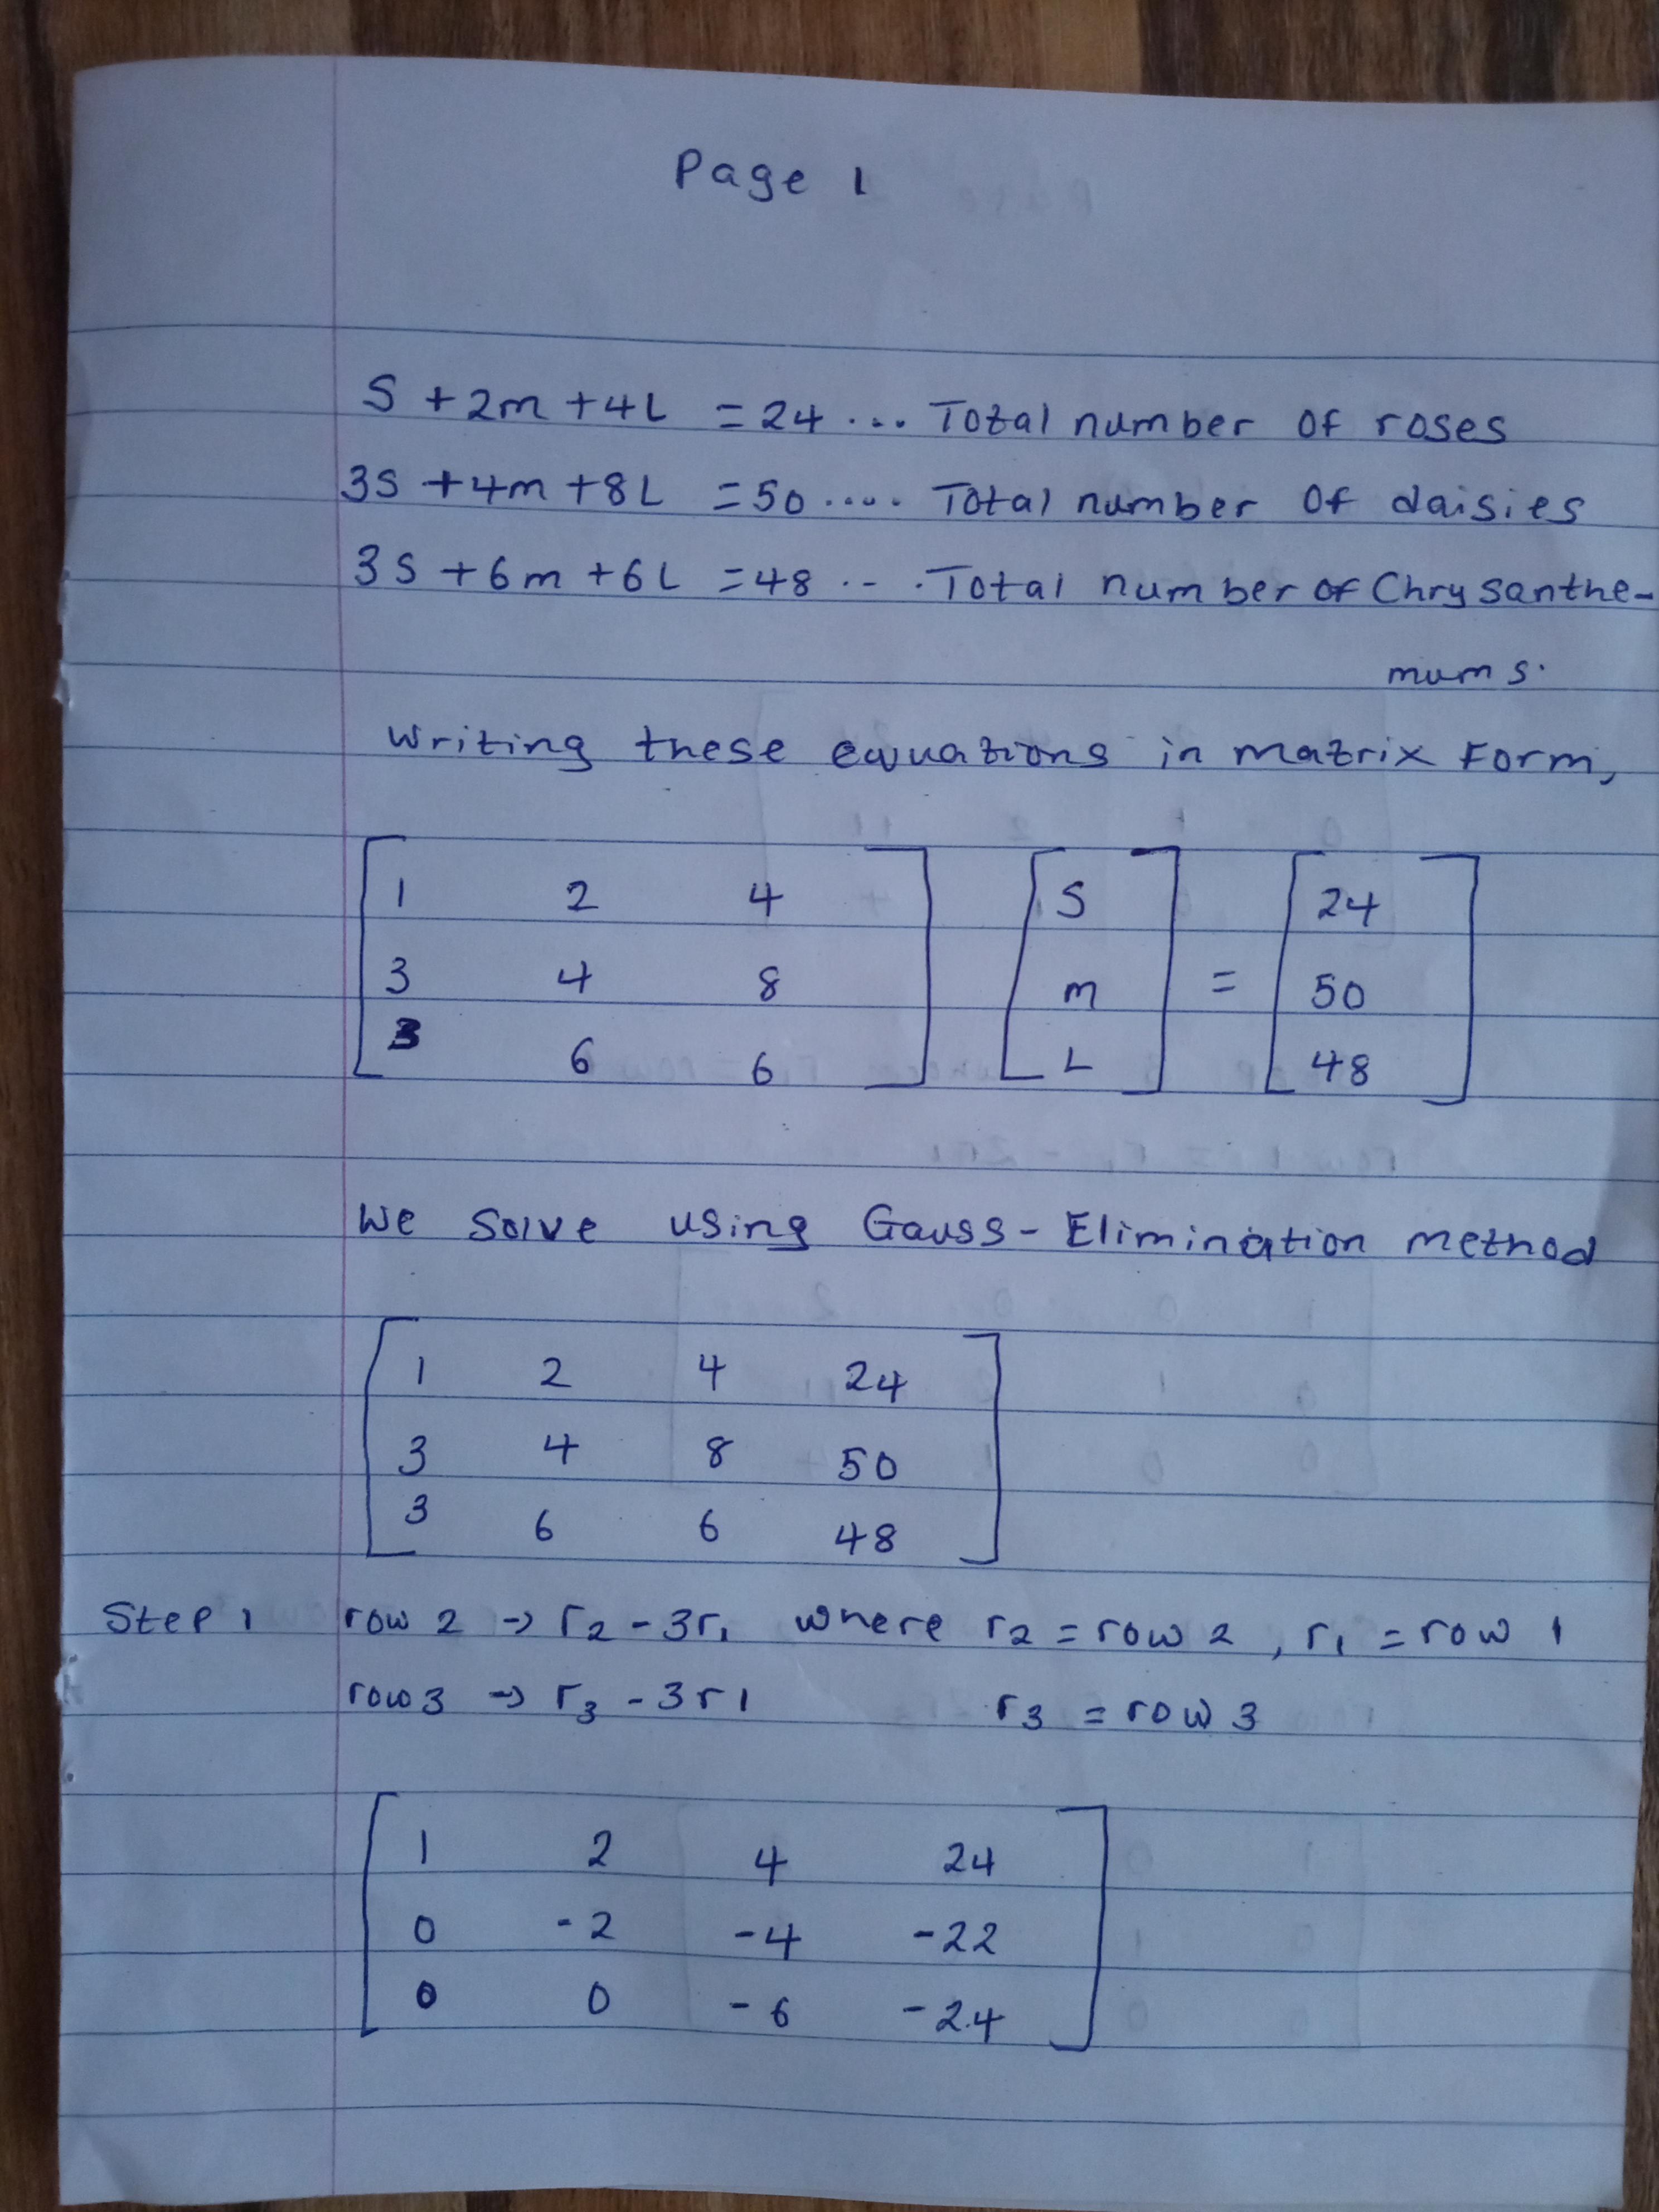 Page 1
S + 2m + 4L = 24 ... Total number of roses
3S + 4m + 8L = 50 .... Total number of daisies
3S + 6m + 6L = 48 ... Total number of Chrysanthe-
mums.
Writing these equations in matrix form,
1 2 4 S 24
3 4 8 m = 50
3 6 6 L 48
We solve using Gauss-Elimination method
1 2 4 24
3 4 8 50
3 6 6 48
Step 1 row 2 → r2 - 3r1 where r2 = row 2, r1 = row 1
row 3 → r3 - 3r1 r3 = row 3
1 2 4 24
0 -2 -4 -22
0 0 -6 -24